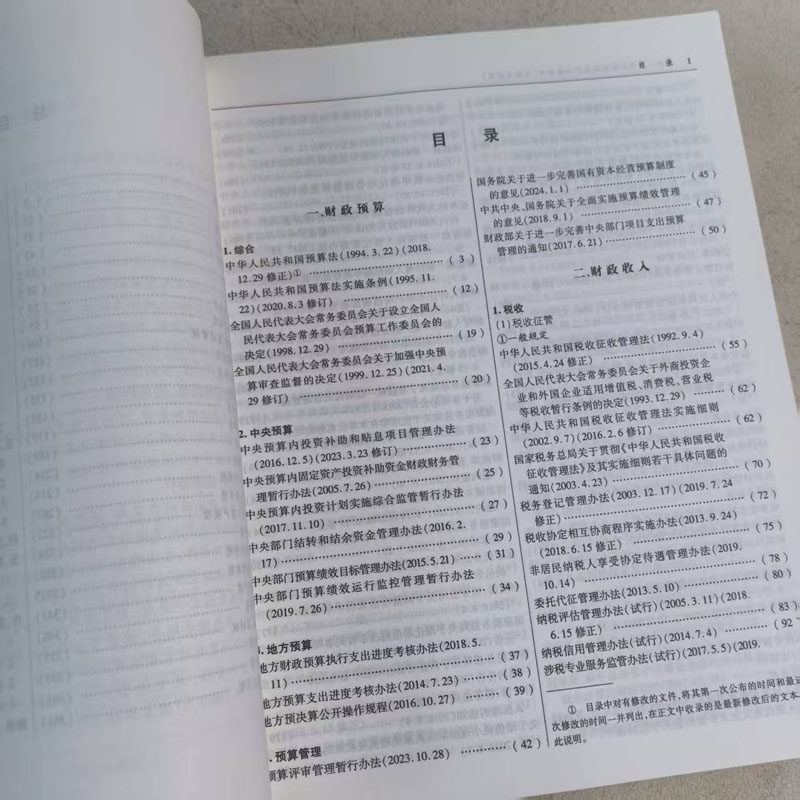 目 录 1
目 录
一、财政预算
1. 综合
中华人民共和国预算法(1994.3.22)(2018.
12.29 修正)① ……………… ( 3 )
中华人民共和国预算法实施条例(1995.11.
22)(2020.8.3 修订) ……………… ( 12 )
全国人民代表大会常务委员会关于设立全国人
民代表大会常务委员会预算工作委员会的
决定(1998.12.29) ……………… ( 19 )
全国人民代表大会常务委员会关于加强中央预
算审查监督的决定(1999.12.25)(2021.4.
29 修订) ……………… ( 20 )
2. 中央预算
中央预算内投资补助和贴息项目管理办法
(2016.12.5)(2023.3.23 修订) ……… ( 23 )
中央预算内固定资产投资补助资金财政财务管
理暂行办法(2005.7.26) ……………… ( 25 )
中央预算内投资计划实施综合监管暂行办法
(2017.11.10) ……………… ( 27 )
中央部门结转和结余资金管理办法(2016.2.
17) ……………… ( 29 )
中央部门预算绩效目标管理办法(2015.5.21) …… ( 31 )
中央部门预算绩效运行监控管理暂行办法
(2019.7.26) ……………… ( 34 )
3. 地方预算
地方财政预算执行支出进度考核办法(2018.5.
11) ……………… ( 37 )
地方预算支出进度考核办法(2014.7.23) …… ( 38 )
地方预决算公开操作规程(2016.10.27) …… ( 39 )
4. 预算管理
预算评审管理暂行办法(2023.10.28) …… ( 42 )
国务院关于进一步完善国有资本经营预算制度
的意见(2024.1.1) ……………… ( 45 )
中共中央、国务院关于全面实施预算绩效管理
的意见(2018.9.1) ……………… ( 47 )
财政部关于进一步完善中央部门项目支出预算
管理的通知(2017.6.21) ……………… ( 50 )
二、财政收入
1. 税收
(1)税收征管
①一般规定
中华人民共和国税收征收管理法(1992.9.4)
(2015.4.24 修正) ……………… ( 55 )
全国人民代表大会常务委员会关于外商投资企
业和外国企业适用增值税、消费税、营业税
等税收暂行条例的决定(1993.12.29) …… ( 62 )
中华人民共和国税收征收管理法实施细则
(2002.9.7)(2016.2.6 修订) ……… ( 62 )
国家税务总局关于贯彻《中华人民共和国税收
征收管理法》及其实施细则若干具体问题的
通知(2003.4.23) ……………… ( 70 )
税务登记管理办法(2003.12.17)(2019.7.24
修正) ……………… ( 72 )
税收协定相互协商程序实施办法(2013.9.24)
(2018.6.15 修正) ……………… ( 75 )
非居民纳税人享受协定待遇管理办法(2019.
10.14) ……………… ( 78 )
委托代征管理办法(2013.5.10) ……… ( 80 )
纳税评估管理办法(试行)(2005.3.11)(2018.
6.15 修正) ……………… ( 83 )
纳税信用管理办法(试行)(2014.7.4) …… ( 92
涉税专业服务监管办法(试行)(2017.5.5)(2019.
① 目录中对有修改的文件，将其第一次公布的时间和最近
次修改的时间一并列出，在正文中收录的是最新修改后的文本
此说明。